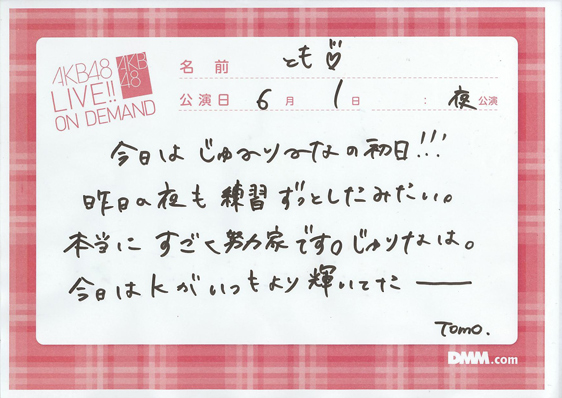 AKB48
LIVE!!
ON DEMAND
AKB
48
名 前 とも
公演日 6月 1日 : 夜公演
今日は じゅ〜り〜なの初日!!!
昨日の夜も 練習 ずっとしたみたい。
本当に すごく努力家です。じゅりなは。
今日はKがいつもより輝いてた ——
Tomo.
DMM.com